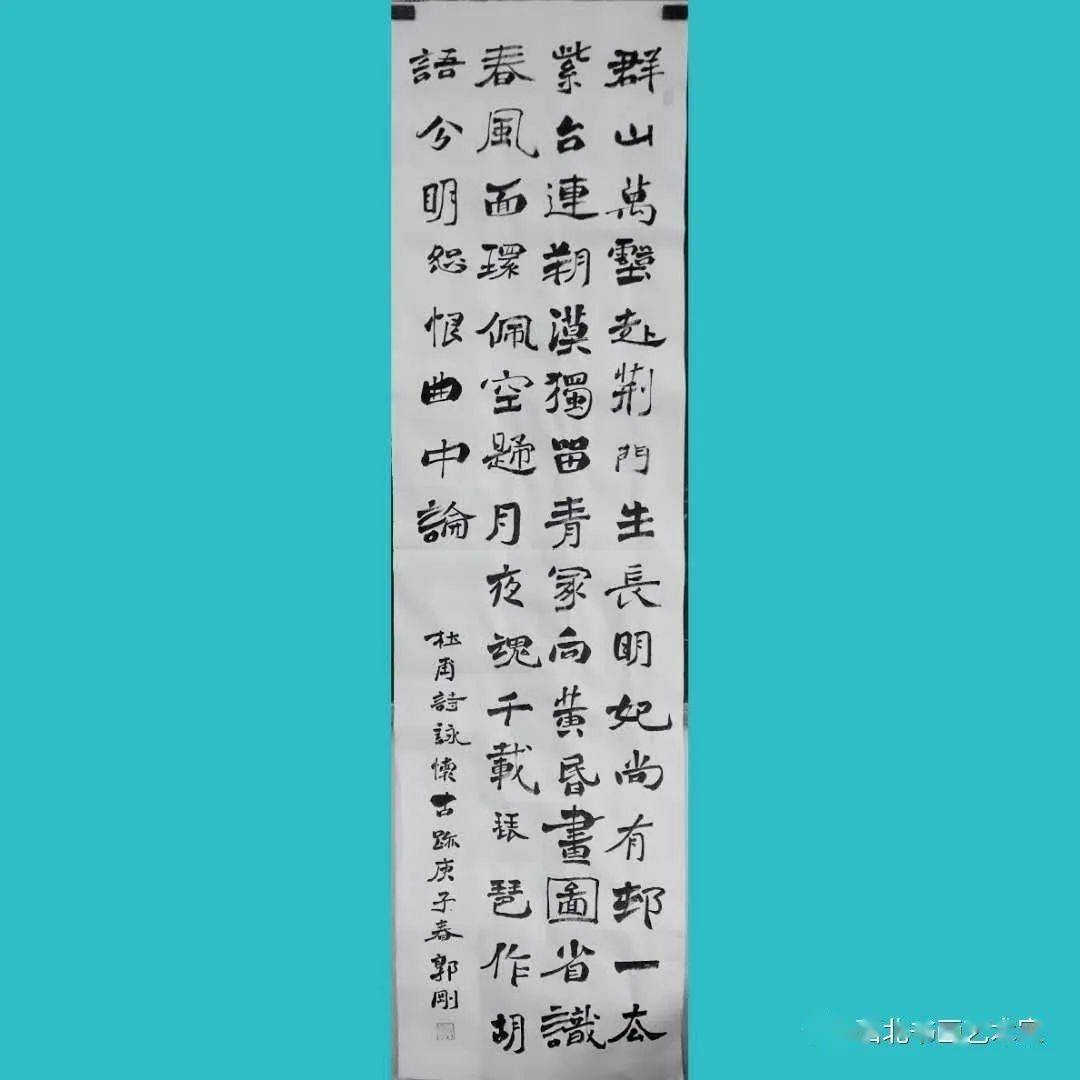 群山萬壑赴荆門生長明妃尚有邨一去
紫台連朔漠獨留青冢向黃昏畫圖省識
春風面環佩空歸月夜魂千載琵琶作胡
語分明怨恨曲中論
杜甫詩詠懷古跡庚子春郭剛
北书画艺术